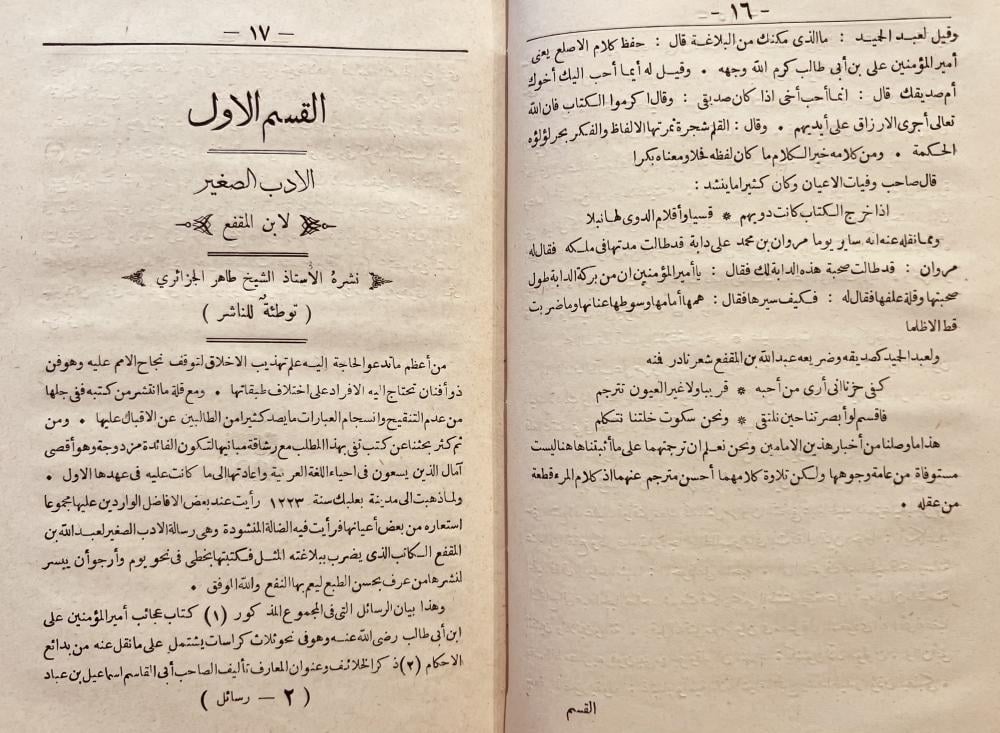 - ١٦ -
وقيل لعبد الحميد : ما الذى مكنك من البلاغة قال : حفظ كلام الاصلع يعنى
أمير المؤمنين على بن أبى طالب كرم الله وجهه . وقيل له أيما أحب اليك أخوك
أم صديقك قال : انما أحب أخى اذا كان صديقى : وقال اكرموا الكتاب فان الله
تعالى أجرى الارزاق على أيديهم . وقال : القلم شجرة ثمرتها الالفاظ والفكر بحر لؤلؤه
الحكمة . ومن كلامه خير الكلام ما كان لفظه فحلا ومعناه بكرا
قال صاحب وفيات الاعيان وكان كثيرا ما ينشد :
اذا خرج الكتاب كانت دويهم * قسيا وأقلام الدوى لها نبلا
ومما نقله عنه انه ساير يوما مروان بن محمد على دابة قد طالت مدتها فى ملكه فقال له
مروان : قد طالت صحبة هذه الدابة لك فقال : يا أمير المؤمنين ان من بركة الدابة طول
صحبتها وقلة علفها فقال له : فكيف سيرها فقال : همها أمامها وسوطها عنانها وما ضربت
قط الا ظلما
ولعبد الحميد كصديقه وضريعه عبد الله بن المقفع شعر نادر فنه
كفى حزنا انى أرى من أحبه * قريبا ولا غير العيون تترجم
فاقسم لو أبصرتنا حين نلتقى * ونحن سكوت خلتنا نتكلم
هذا ما وصلنا من أخبار هذين الامامين ونحن نعلم ان ترجمتهما على ما أثبتناها هنا ليست
مستوفاة من عامة وجوهها ولكن تلاوة كلامهما أحسن مترجم عنهما اذ كلام المرء قطعة
من عقله .
القسم
- ١٧ -
القسم الاول
الادب الصغير
لابن المقفع
نشره الأستاذ الشيخ طاهر الجزائري
( توطئة للناشر )
من أعظم ما تدعو الحاجة اليه علم تهذيب الاخلاق لتوقف نجاح الامم عليه وهو فن
ذو أفنان تحتاج اليه الافراد على اختلاف طبقاتها . ومع قلة ما انتشر من كتبه ففى جلها
من عدم التنقيح وانسجام العبارات ما يصد كثيرا من الطالبين عن الاقبال عليها . ومن
ثم كثر بحثنا عن كتب تفى بهذا المطلب مع رشاقة مبانيها لتكون الفائدة مزدوجة وهو أقصى
آمال الذين يسعون فى احياء اللغة العربية واعادتها الى ما كانت عليه فى عهدها الاول .
ولما ذهبت الى مدينة بعلبك سنة ١٢٢٣ رأيت عند بعض الافاضل الواردين عليها مجموعا
استعاره من بعض أعيانها فرأيت فيه الضالة المنشودة وهى رسالة الادب الصغير لعبد الله بن
المقفع الكاتب الذى يضرب ببلاغته المثل فكتبتها بخطى فى نحو يوم وأرجو أن ييسر
لنشرها من عرف بحسن الطبع ليعم بها النفع والله الموفق .
وهذا بيان الرسائل التى فى المجموع المذكور (١) كتاب عجائب أمير المؤمنين على
ابن أبى طالب رضى الله عنه وهو فى نحو ثلاث كراسات يشتمل على ما نقل عنه من بدائع
الاحكام (٢) ذكر الخلائف وعنوان المعارف تأليف الصاحب أبى القاسم اسماعيل بن عباد
( ٢ - رسائل )